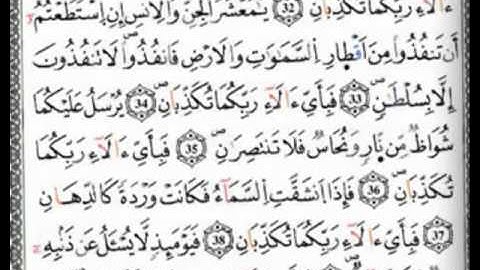 ءَالَآءِ رَبِّكُمَا تُكَذِّبَانِ 32 يَٰمَعْشَرَ الْجِنِّ وَالْإِنسِ إِنِ اسْتَطَعْتُمُۥٓ
أَن تَنفُذُوا مِنْ أَقْطَارِ السَّمَٰوَٰتِ وَالْأَرْضِ فَانفُذُوا لَا تَنفُذُونَ
إِلَّا بِسُلْطَٰنٍ 33 فَبِأَيِّ ءَالَآءِ رَبِّكُمَا تُكَذِّبَانِ 34 يُرْسَلُ عَلَيْكُمَا
شُوَاظٌ مِّن نَّارٍ وَنُحَاسٌ فَلَا تَنتَصِرَٰنِ 35 فَبِأَيِّ ءَالَآءِ رَبِّكُمَا
تُكَذِّبَانِ 36 فَإِذَا انشَقَّتِ السَّمَآءُ فَكَانَتْ وَرْدَةً كَالدِّهَانِ
37 فَبِأَيِّ ءَالَآءِ رَبِّكُمَا تُكَذِّبَانِ 38 فَيَوْمَئِذٍ لَّا يُسْـَٔلُ عَن ذَنۢبِهِۦٓ